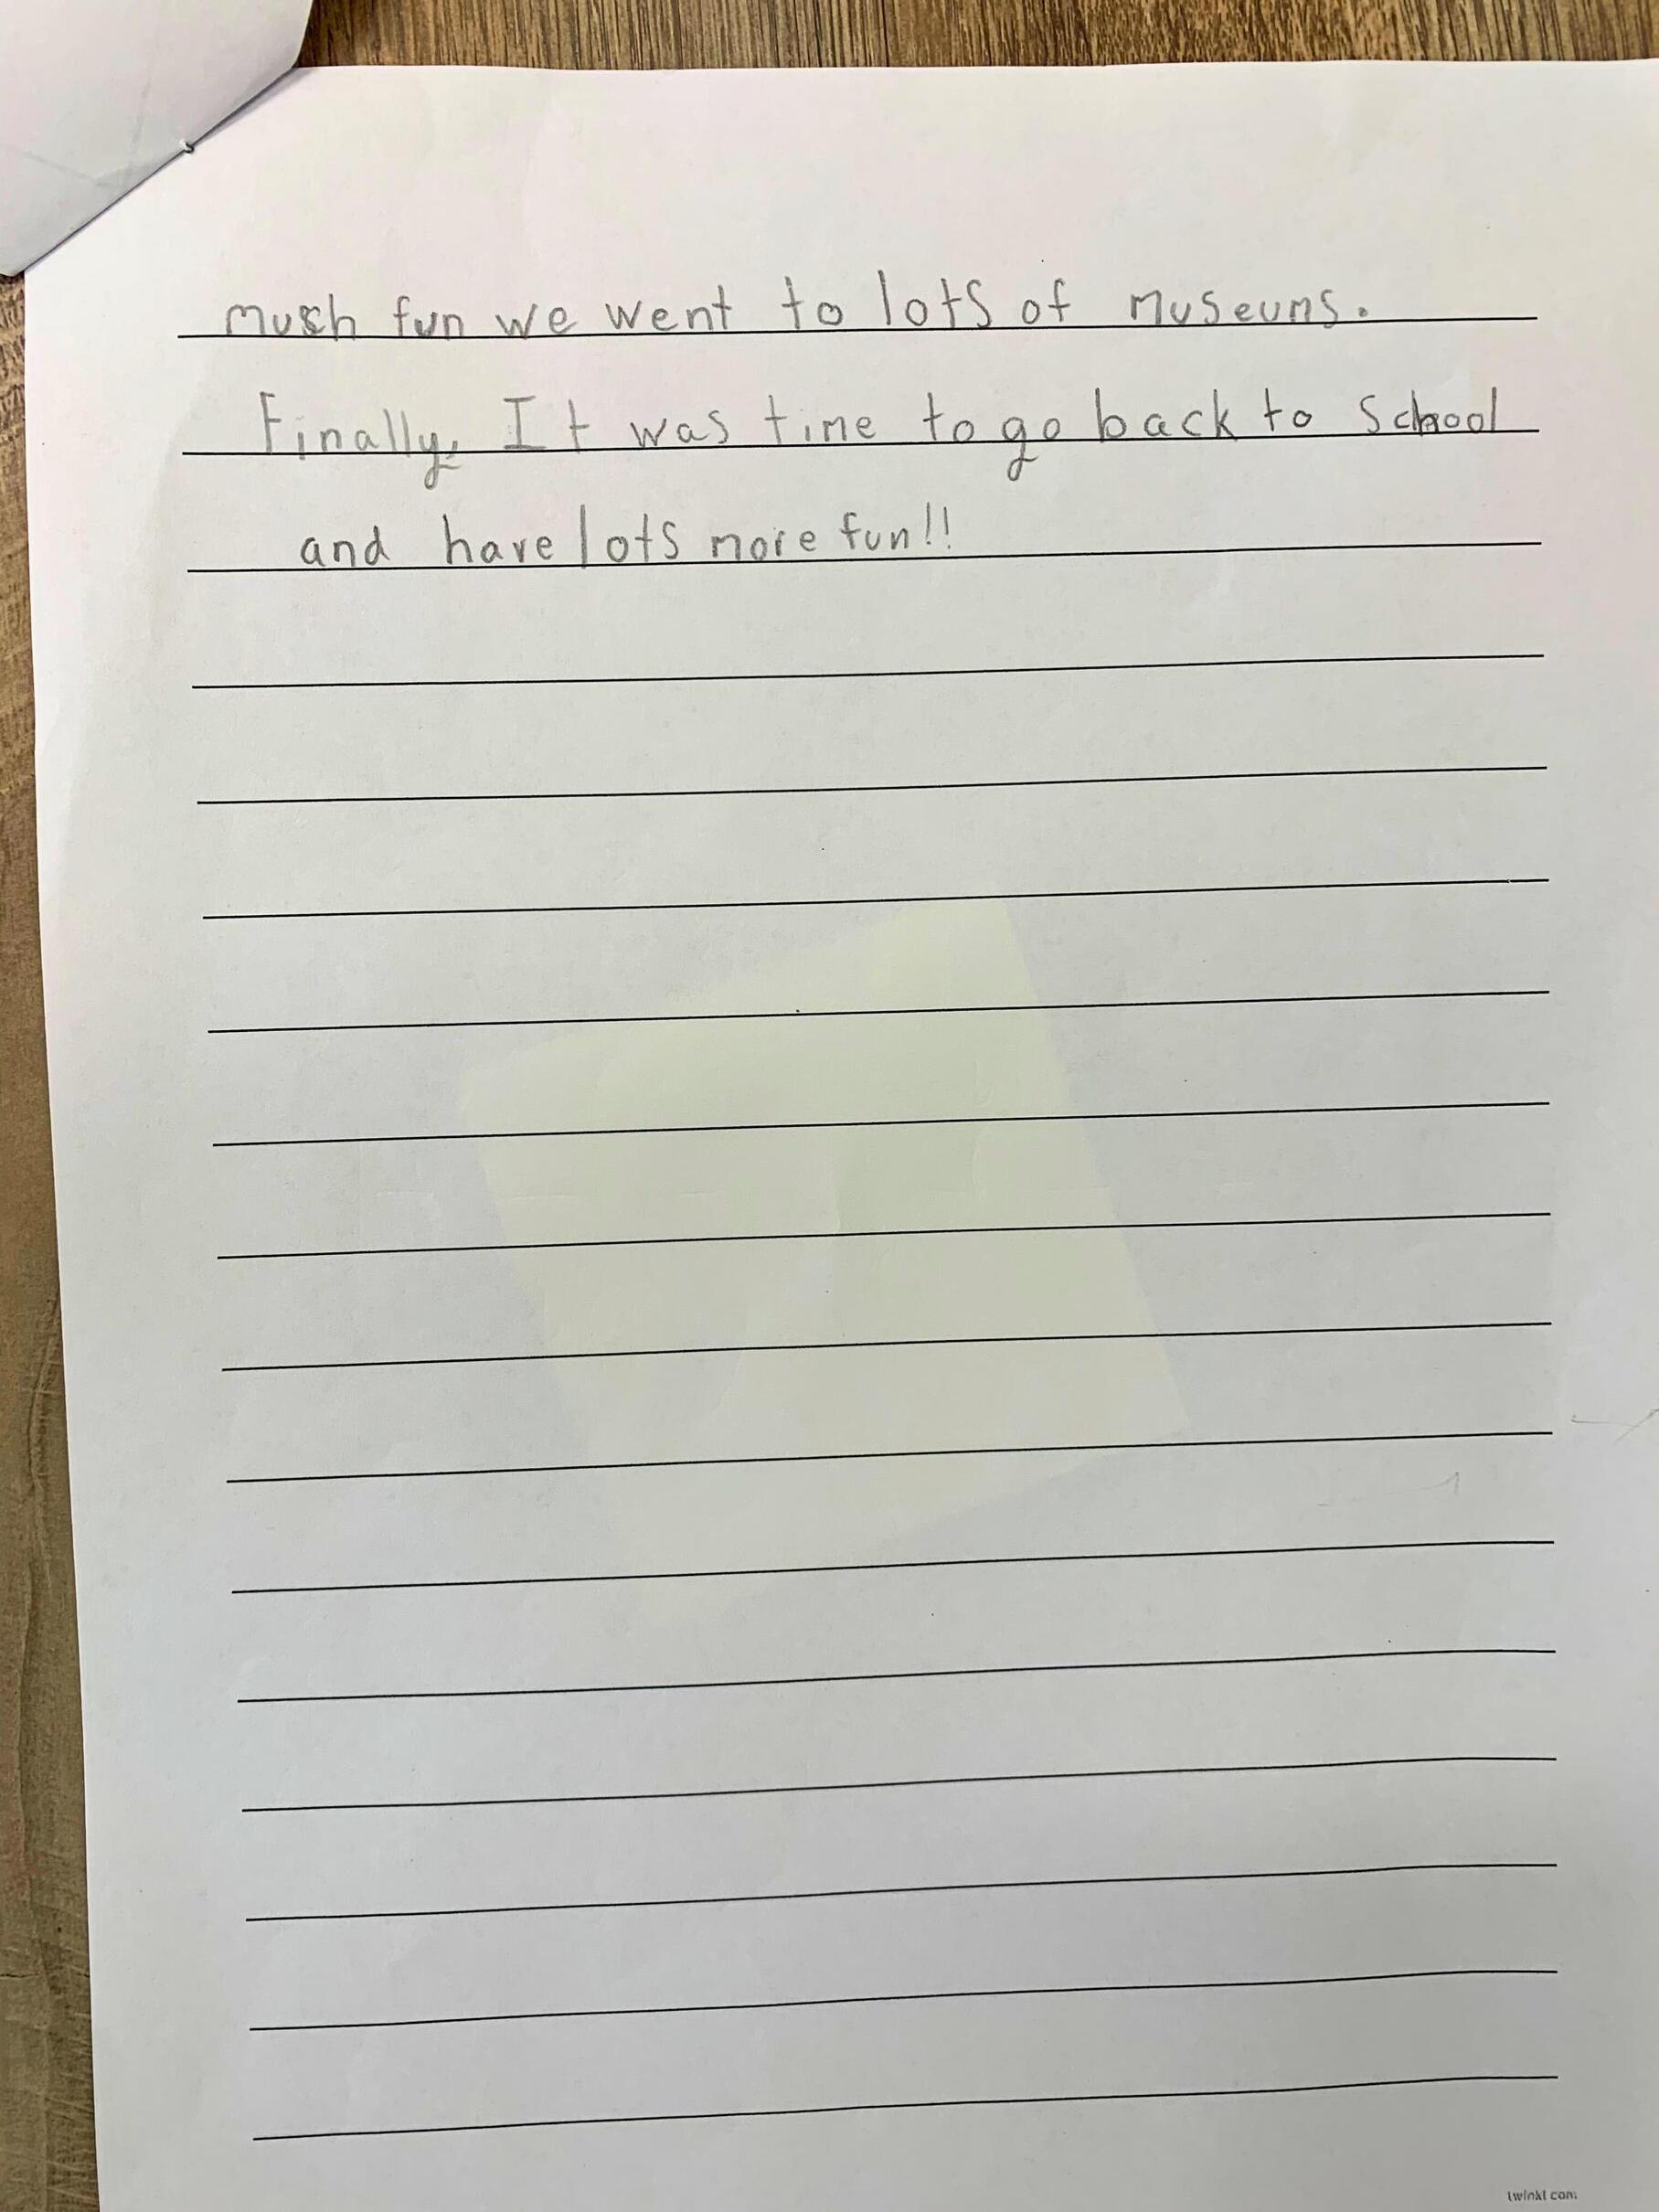 much fun we went to lots of museums.
Finally, It was time to go back to School
and have lots more fun!!
twinkl.com